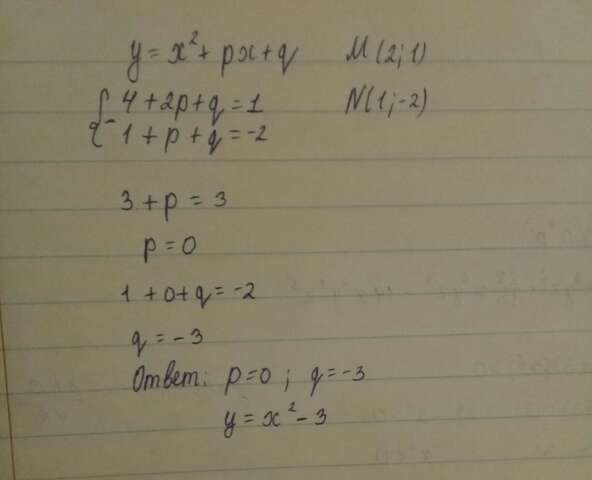 y = x² + px + q M(2; 1)
{- 4 + 2p + q = 1 N(1; -2)
1 + p + q = -2
3 + p = 3
p = 0
1 + 0 + q = -2
q = -3
Ответ: p = 0 ; q = -3
y = x² - 3